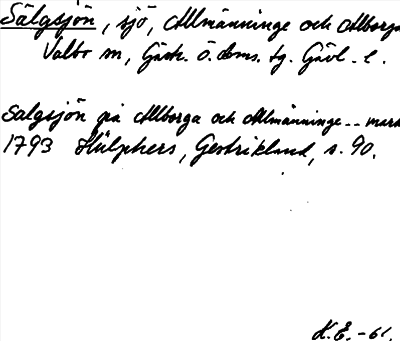 Sälgsjön, sjö, Allmänninge och Allborga
Valbo sn, Gästr. Ö. doms. tg. Gävl. l.
Salgsjön på Allborga och Allmänninge -- mark
1793 Hülphers, Gestrikland, s. 90.
K.E. -61.